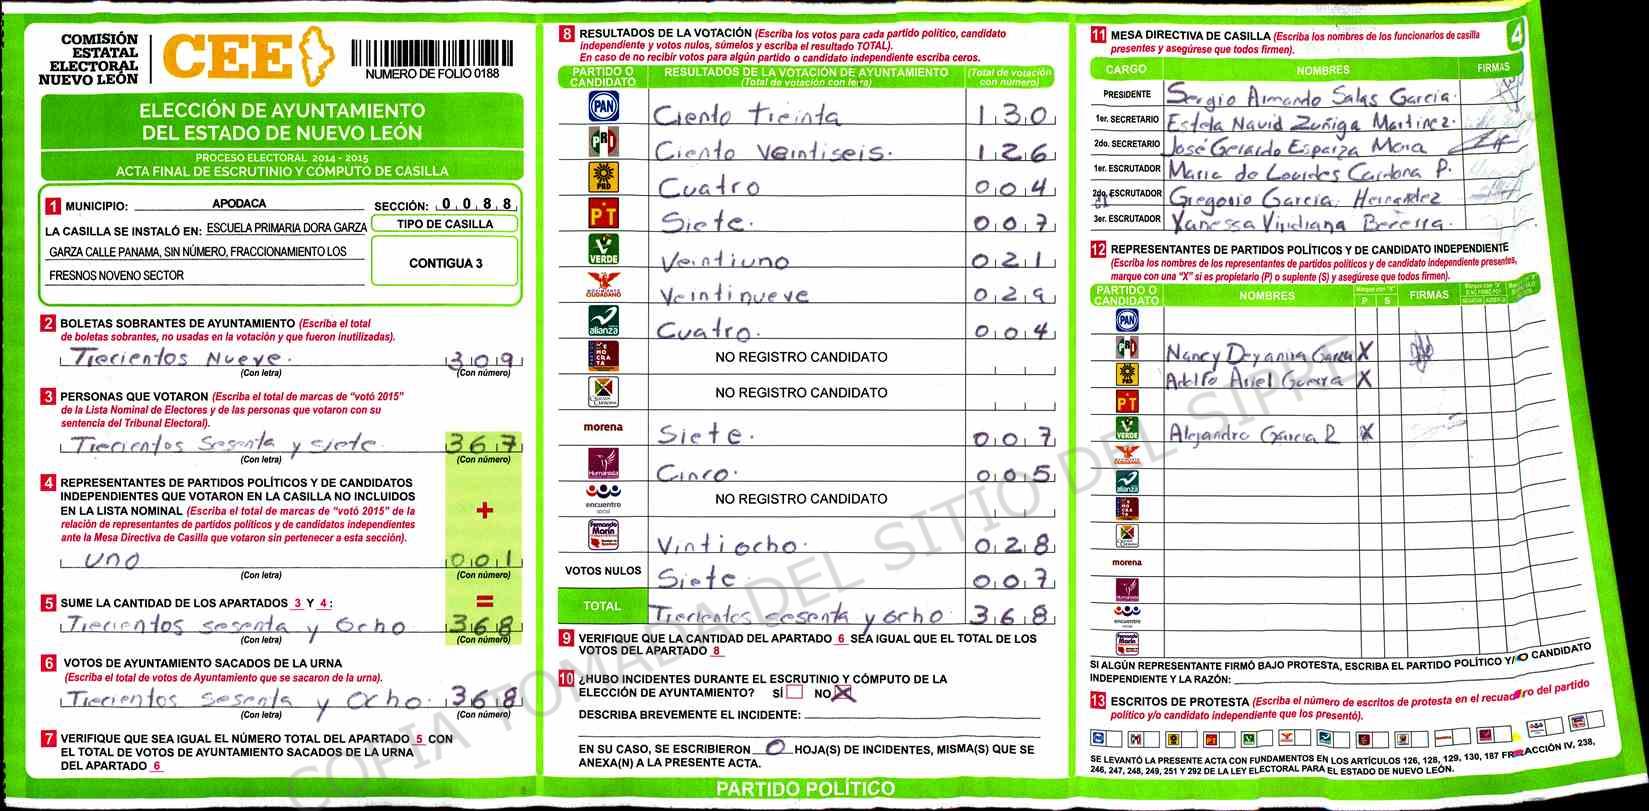 COMISIÓN
ESTATAL
ELECTORAL
NUEVO LEÓN
CEE
NUMERO DE FOLIO 0188
ELECCIÓN DE AYUNTAMIENTO
DEL ESTADO DE NUEVO LEÓN
PROCESO ELECTORAL 2014 - 2015
ACTA FINAL DE ESCRUTINIO Y CÓMPUTO DE CASILLA
1 MUNICIPIO: APODACA SECCIÓN: 0 0 8 8
LA CASILLA SE INSTALÓ EN: ESCUELA PRIMARIA DORA GARZA
GARZA CALLE PANAMA, SIN NÚMERO, FRACCIONAMIENTO LOS
FRESNOS NOVENO SECTOR
TIPO DE CASILLA
CONTIGUA 3
2 BOLETAS SOBRANTES DE AYUNTAMIENTO (Escriba el total
de boletas sobrantes, no usadas en la votación y que fueron inutilizadas).
Trecientos Nueve. 3 0 9
(Con letra) (Con número)
3 PERSONAS QUE VOTARON (Escriba el total de marcas de "votó 2015"
de la Lista Nominal de Electores y de las personas que votaron con su
sentencia del Tribunal Electoral).
Trecientos Sesenta y siete. 3 6 7
(Con letra) (Con número)
4 REPRESENTANTES DE PARTIDOS POLÍTICOS Y DE CANDIDATOS
INDEPENDIENTES QUE VOTARON EN LA CASILLA NO INCLUIDOS
EN LA LISTA NOMINAL (Escriba el total de marcas de "votó 2015" de la
relación de representantes de partidos políticos y de candidatos independientes
ante la Mesa Directiva de Casilla que votaron sin pertenecer a esta sección).
+
uno 0 0 1
(Con letra) (Con número)
5 SUME LA CANTIDAD DE LOS APARTADOS 3 Y 4 : =
Trecientos sesenta y Ocho 3 6 8
(Con letra) (Con número)
6 VOTOS DE AYUNTAMIENTO SACADOS DE LA URNA
(Escriba el total de votos de Ayuntamiento que se sacaron de la urna).
Trecientos Sesenta y Ocho. 3 6 8
(Con letra) (Con número)
7 VERIFIQUE QUE SEA IGUAL EL NÚMERO TOTAL DEL APARTADO 5 CON
EL TOTAL DE VOTOS DE AYUNTAMIENTO SACADOS DE LA URNA
DEL APARTADO 6
8 RESULTADOS DE LA VOTACIÓN (Escriba los votos para cada partido político, candidato
independiente y votos nulos, súmelos y escriba el resultado TOTAL).
En caso de no recibir votos para algún partido o candidato independiente escriba ceros.
PARTIDO O CANDIDATO RESULTADOS DE LA VOTACIÓN DE AYUNTAMIENTO (Total de votación con letra) (Total de votación con número)
PAN Ciento treinta 1 3 0
PRI Ciento veintiseis. 1 2 6
PRD Cuatro 0 0 4
PT Siete. 0 0 7
VERDE Veintiuno 0 2 1
MOVIMIENTO CIUDADANO Veintinueve 0 2 9
alianza Cuatro. 0 0 4
DEMOCRATA NO REGISTRO CANDIDATO
NO REGISTRO CANDIDATO
morena Siete. 0 0 7
Humanista Cinco. 0 0 5
encuentro social NO REGISTRO CANDIDATO
Fernando Marín Vintiocho. 0 2 8
VOTOS NULOS Siete 0 0 7
TOTAL Trecientos sesenta y ocho. 3 6 8
9 VERIFIQUE QUE LA CANTIDAD DEL APARTADO 6 SEA IGUAL QUE EL TOTAL DE LOS
VOTOS DEL APARTADO 8
10 ¿HUBO INCIDENTES DURANTE EL ESCRUTINIO Y CÓMPUTO DE LA
ELECCIÓN DE AYUNTAMIENTO? SÍ NO X
DESCRIBA BREVEMENTE EL INCIDENTE:
EN SU CASO, SE ESCRIBIERON 0 HOJA(S) DE INCIDENTES, MISMA(S) QUE SE
ANEXA(N) A LA PRESENTE ACTA.
PARTIDO POLÍTICO
11 MESA DIRECTIVA DE CASILLA (Escriba los nombres de los funcionarios de casilla
presentes y asegúrese que todos firmen).
4
CARGO NOMBRES FIRMAS
PRESIDENTE Sergio Armando Salas Garcia.
1er. SECRETARIO Estela Navid Zuñiga Martinez.
2do. SECRETARIO José Gerardo Esparza Mora
1er. ESCRUTADOR Maria de Lourdes Cardona P.
2do. ESCRUTADOR Gregorio Garcia Hernandez
3er. ESCRUTADOR Vanessa Viridiana Becerra.
12 REPRESENTANTES DE PARTIDOS POLÍTICOS Y DE CANDIDATO INDEPENDIENTE
(Escriba los nombres de los representantes de partidos políticos y de candidato independiente presentes,
marque con una "X" si es propietario (P) o suplente (S) y asegúrese que todos firmen).
PARTIDO O CANDIDATO NOMBRES Marque con "X" P S FIRMAS
PAN
PRI Nancy Deyanira Garza X
PRD Adolfo Ariel Guerra X
PT
VERDE Alejandro Garcia R X
CIUDADANO
alianza
morena
Humanista
encuentro social
SI ALGÚN REPRESENTANTE FIRMÓ BAJO PROTESTA, ESCRIBA EL PARTIDO POLÍTICO Y/O CANDIDATO
INDEPENDIENTE Y LA RAZÓN:
13 ESCRITOS DE PROTESTA (Escriba el número de escritos de protesta en el recuadro del partido
político y/o candidato independiente que los presentó).
SE LEVANTÓ LA PRESENTE ACTA CON FUNDAMENTOS EN LOS ARTÍCULOS 126, 128, 129, 130, 187 FRACCIÓN IV, 238,
246, 247, 248, 249, 251 Y 292 DE LA LEY ELECTORAL PARA EL ESTADO DE NUEVO LEÓN.
COPIA TOMADA DEL SITIO DEL SIPRE